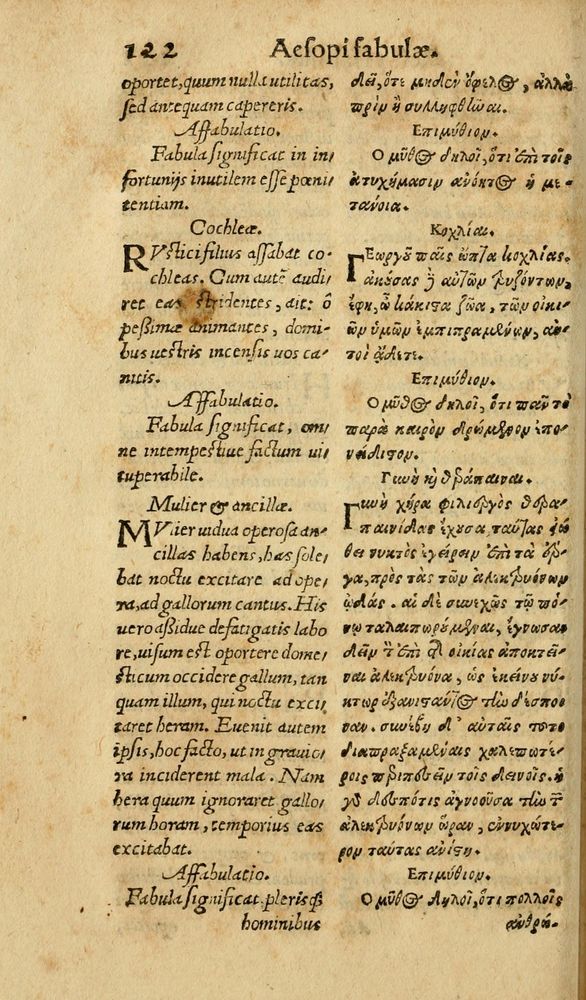 122 Aesopi fabulæ.
oportet, quum nulla utilitas,
sed antequam capereris.
Affabulatio.
Fabula significat in in
fortunijs inutilem esse pœni
tentiam.
Cochleæ.
RVstici filius assabat co-
chleas. Cum autẽ audi
ret eas stridentes, ait: ô
pessimæ animantes, domi-
bus uestris incensis uos ca-
nitis.
Affabulatio.
Fabula significat, om-
ne intempestiue factum ui
tuperabile.
Mulier & ancillæ.
MVlier uidua operosa an-
cillas habens, has sole
bat noctu excitare ad ope
ra, ad gallorum cantus. His
uero assidue defatigatis labo
re, uisum est oportere dome-
sticum occidere gallum, tan
quam illum, qui noctu exci
taret heram. Euenit autem
ipsis, hoc facto, ut in grauio-
ra inciderent mala. Nam
hera quum ignoraret gallo-
rum horam, temporius eas
excitabat.
Affabulatio.
Fabula significat, plerisq́
hominibus
δεῖ, ὅτε μηδὲν ὄφελος, ἀλλὰ
πρὶν ἢ συλληφθῆναι.
Επιμύθιον.
Ο μῦθος δηλοῖ, ὅτι ἐπὶ τοῖς
ἀτυχήμασιν ἀνόητος ἡ με-
τάνοια.
Κοχλίαι.
ΓΕωργοῦ παῖς ὤπτα κοχλίας.
ἀκούσας δὲ αὐτῶν τρυζόντων,
ἔφη, ὦ κάκιστα ζῶα, τῶν οἰκι-
ῶν ὑμῶν ἐμπιπραμένων, αὐ-
τοὶ ᾄδετε.
Επιμύθιον.
Ο μῦθος δηλοῖ, ὅτι πᾶν τὸ
παρὰ καιρὸν δρώμενον ἐπο-
νείδιστον.
Γυνὴ καὶ θεράπαιναι.
ΓΥνὴ χήρα φιλεργὸς θερα-
παινίδας ἔχουσα, ταύτας εἰώ
θει νυκτὸς ἐγείρειν ἐπὶ τὰ ἔρ-
γα, πρὸς τὰς τῶν ἀλεκτρυόνων
ᾠδάς. αἱ δὲ συνεχῶς τῷ πό-
νῳ ταλαιπωρούμεναι, ἔγνωσαν
δεῖν τὸν ἐπὶ τῆς οἰκίας ἀποκτεῖ-
ναι ἀλεκτρυόνα, ὡς ἐκείνου νύ-
κτωρ ἐξανιστάντος τὴν δέσποι
ναν. συνέβη δ' αὐταῖς τοῦτο
διαπραξαμέναις χαλεπωτέ-
ροις περιπεσεῖν τοῖς δεινοῖς. ἡ
γὰρ δεσπότις ἀγνοοῦσα τὴν τῶν
ἀλεκτρυόνων ὥραν, ἐννυχώτε-
ρον ταύτας ἀνίστη.
Επιμύθιον.
Ο μῦθος δηλοῖ, ὅτι πολλοῖς
ἀνθρώ-